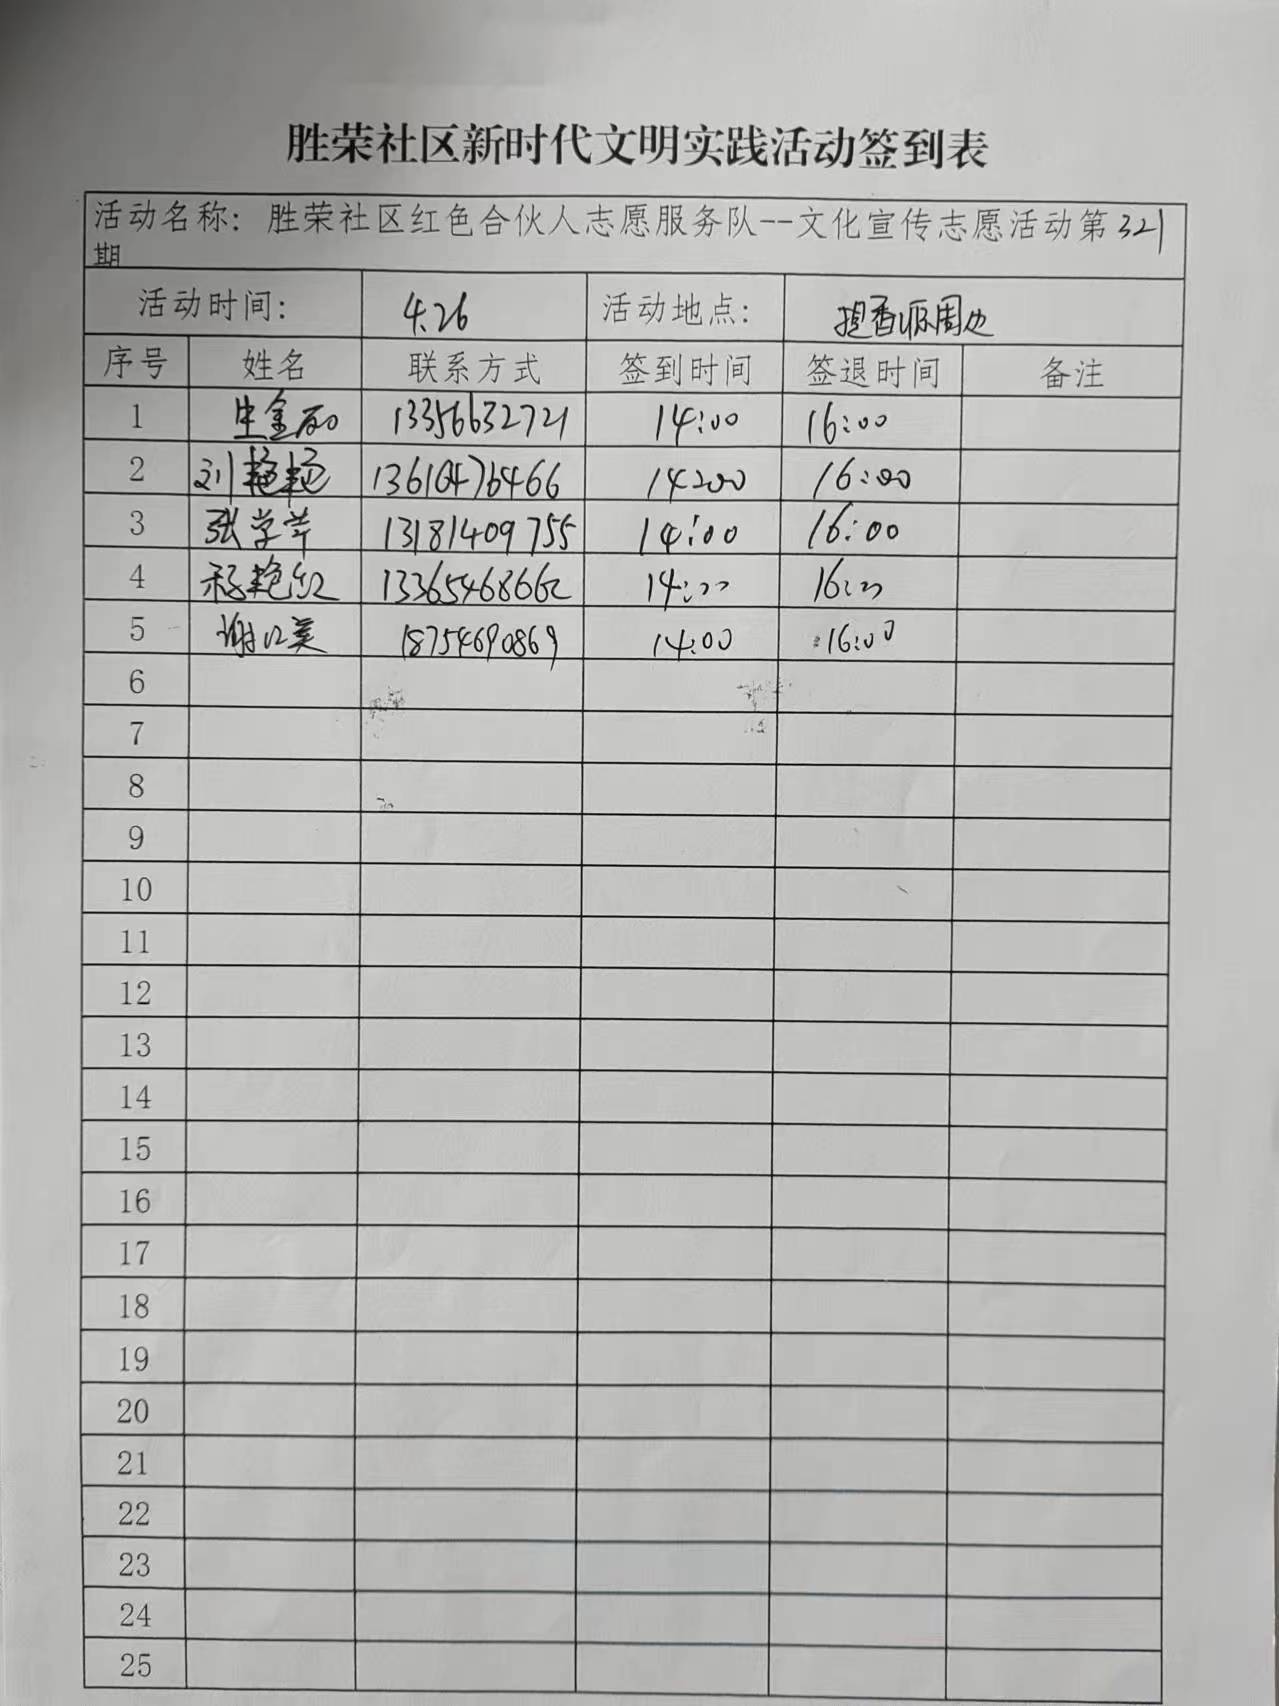 胜荣社区新时代文明实践活动签到表
活动名称：胜荣社区红色合伙人志愿服务队--文化宣传志愿活动第321
期
活动时间： 4.26 活动地点： 提香源周边
序号 姓名 联系方式 签到时间 签退时间 备注
1 13356632721 14:00 16:00
2 刘艳艳 13610476466 14:00 16:00
3 张学芹 13181409755 14:00 16:00
4 13365468662 14:00 16:00
5 谢江英 18754690869 14:00 16:00
6
7
8
9
10
11
12
13
14
15
16
17
18
19
20
21
22
23
24
25